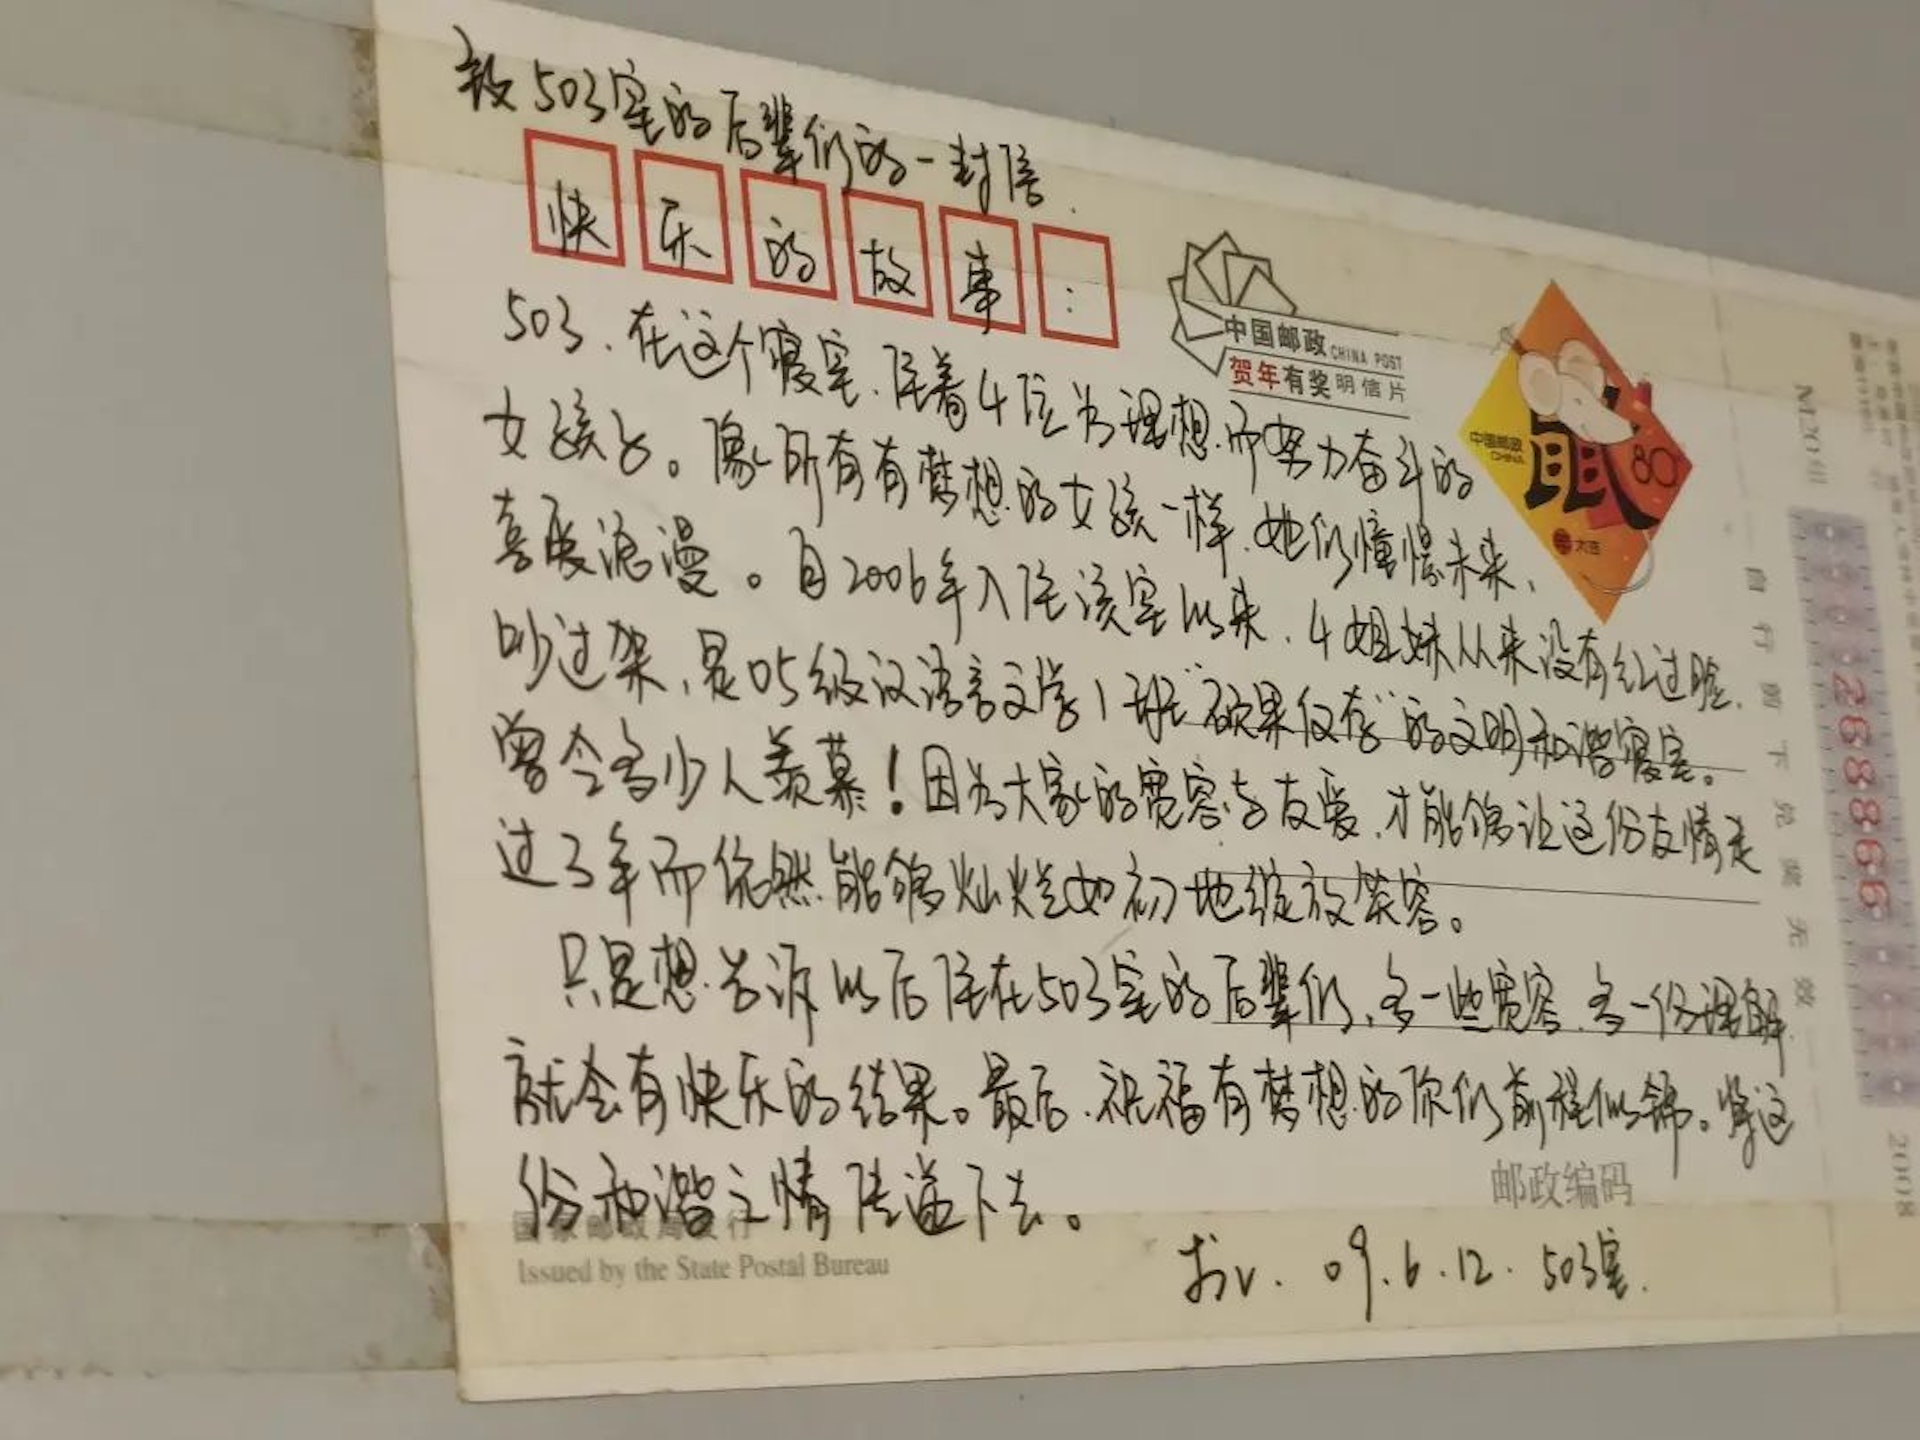 致503室的后辈们的一封信.
快乐的故事:
中国邮政 CHINA POST
贺年有奖明信片
503、在这个寝室、住着4位为理想而努力奋斗的
女孩子。像所有有梦想的女孩一样、她们憧憬未来、
喜爱浪漫。自2006年入住该室以来、4姐妹从来没有红过脸、
吵过架、是05级汉语言文学1班“硕果仅存”的文明和谐寝室。
曾令多少人羡慕!因为大家的宽容与友爱、才能够让这份友情走
过3年而依然能够灿烂如初地绽放笑容。
只是想告诉以后住在503室的后辈们、多一些宽容、多一份理解
就会有快乐的结果。最后、祝福有梦想的你们前程似锦。将这
份和谐之情传递下去。
中国邮政
CHINA
鼠
80
国家邮政局发行
Issued by the State Postal Bureau
邮政编码
09.6.12. 503室.
自行剪下兑奖无效
268866
2008